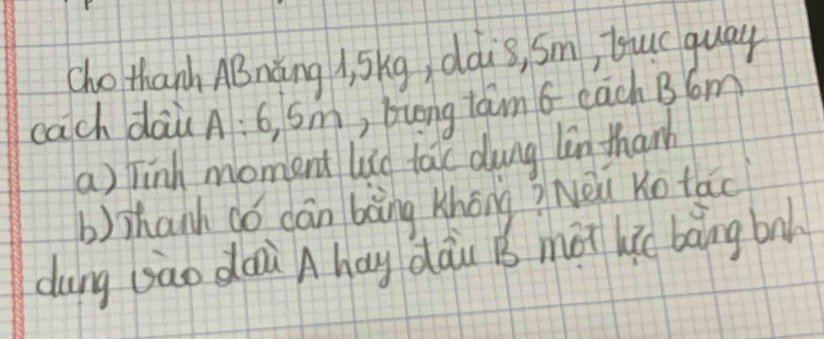 Cho thanh AB nặng 1,5kg, dài 8,5m, trục quay
cách đầu A: 6,5m, trọng tâm G cách B 6m
a) Tính moment lực tác dụng lên thanh
b) Thanh có cân bằng không? Nếu ko tác
dụng vào đầu A hay đầu B một lực bằng bnh